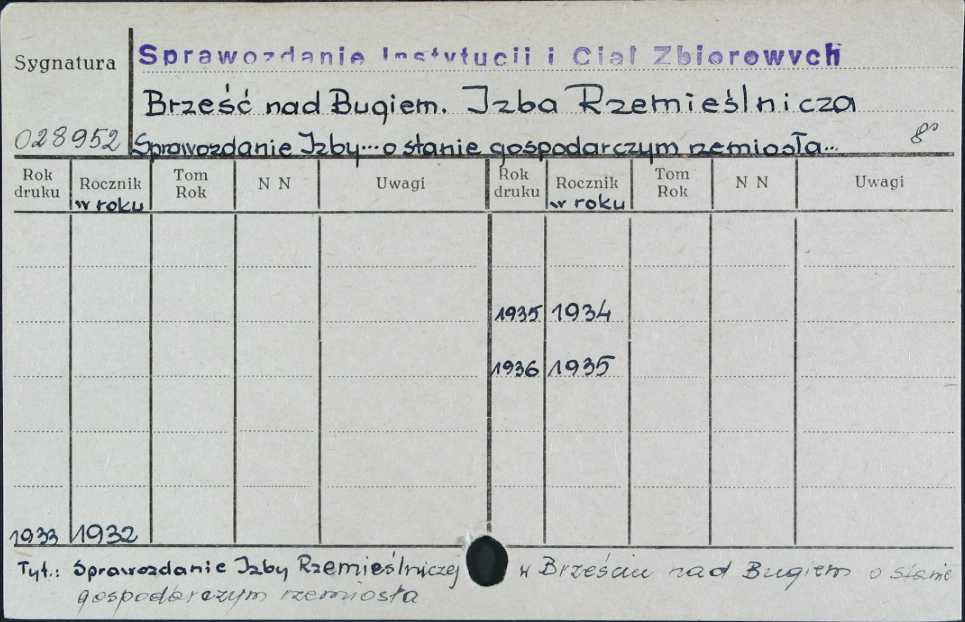 Sygnatura
Sprawozdanie Instytucji i Ciał Zbiorowych
Brześć nad Bugiem. Izba Rzemieślnicza
028952 Sprawozdanie Izby... o stanie gospodarczym rzemiosła... 8°
Rok druku Rocznik w roku Tom Rok N N Uwagi Rok druku Rocznik w roku Tom Rok N N Uwagi
1935 1934
1936 1935
1933 1932
Tyt.: Sprawozdanie Izby Rzemieślniczej w Brześciu nad Bugiem o stanie
gospodarczym rzemiosła